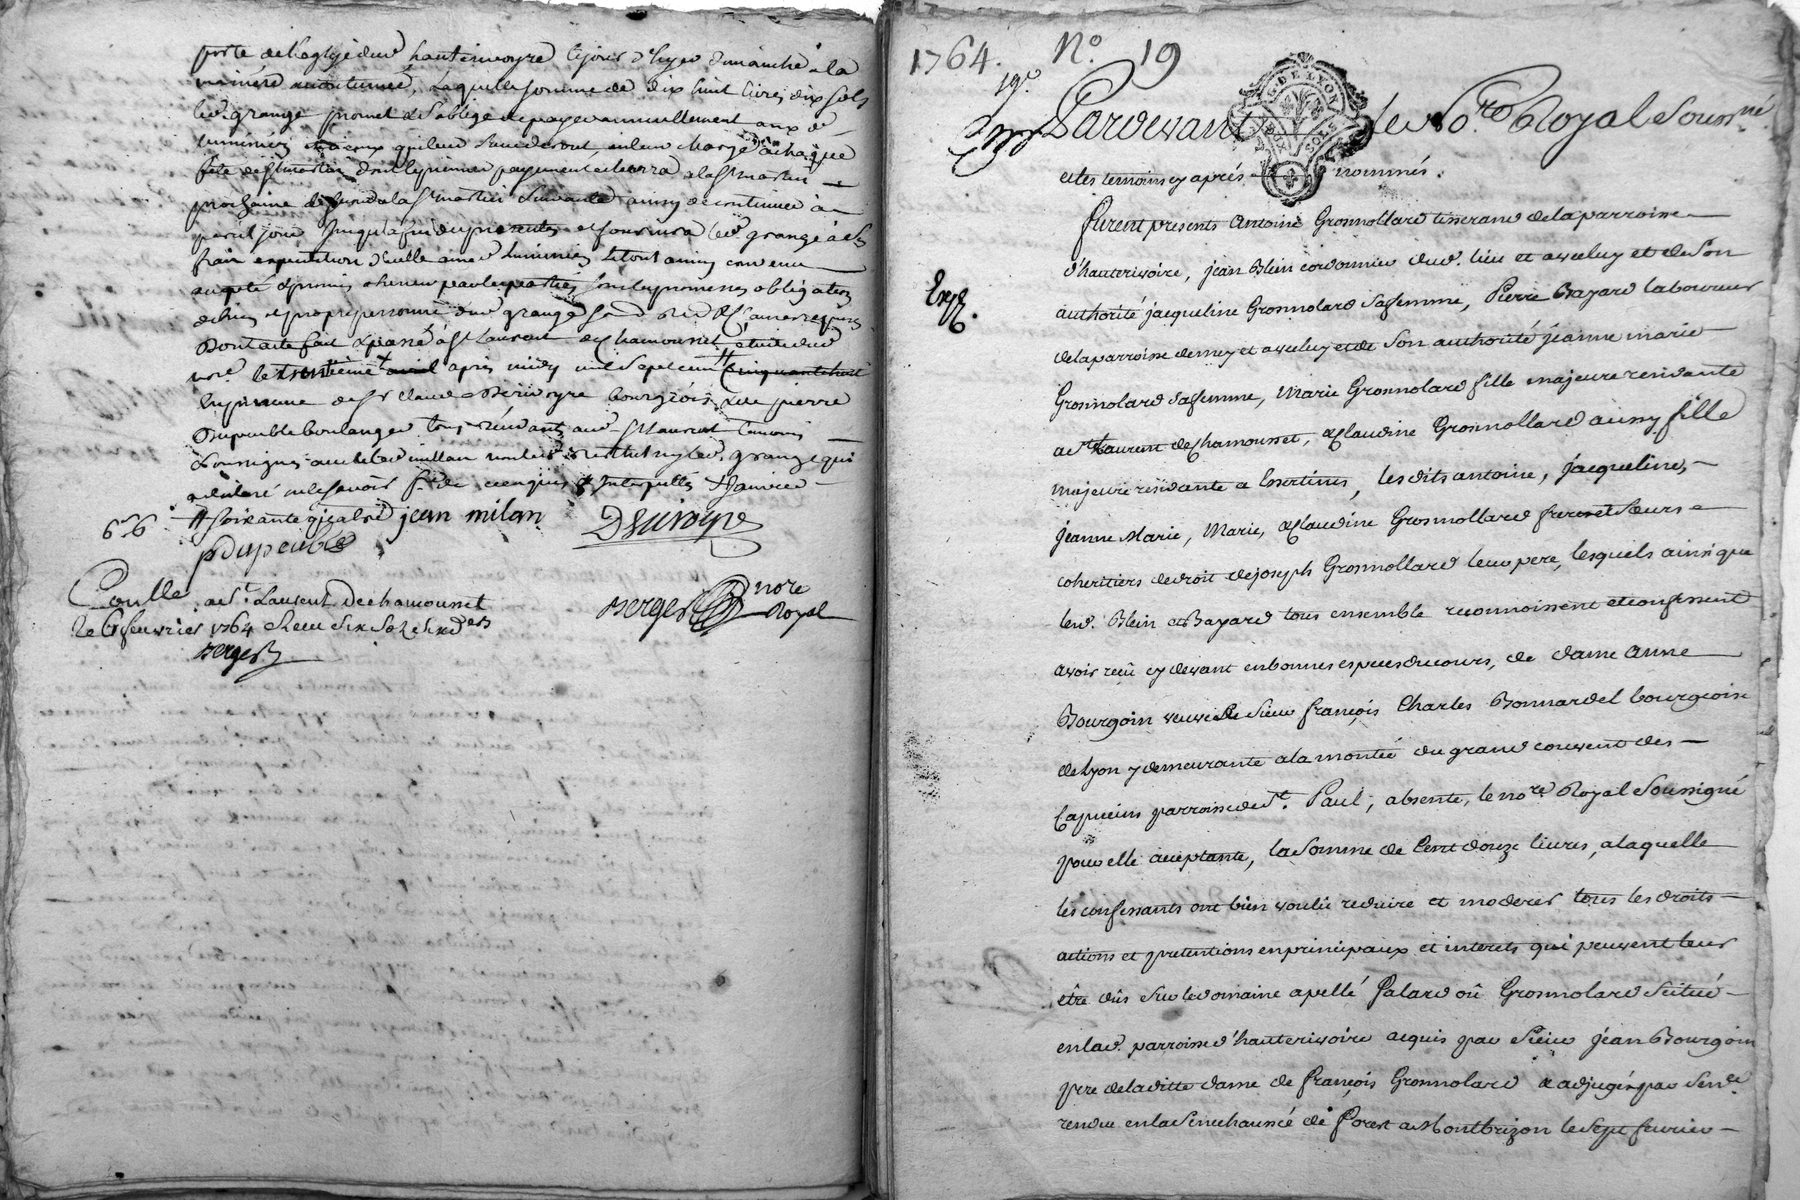 porte de l'eglise dud hauterivoyre le jour d'hyer dimanche a la
maniere accoutumée, laquelle somme de dix huit livres dix sols
led. grange promet & s'oblige de payer annuellement aux d
luminiers ou a ceux qui leur succederont, en leur charge a chaque
fête de st martin dont le premier payement echerra a la st martin
prochaine le second a la st martin suivante ainsy a continuer a
pareil jour jusqu'a fin du present et fournira led. grange a ses
frais expedition d'icelle auxd luminiers le tout ainsy convenu
accepté & promis observer par les parties sous les promesses obligation
de biens
Dont acte fait & passé a St Laurent de Chamousset, etude dud
nore. le trentième avril après midy mil sept cent cinquante huit
en presence de sr Claude Deriuoyre bourgeois & de pierre
Dupeuble boulanger tous residants aud St Laurent temoins
soussignés avec led millan non led. grange qui
a declaré ne le savoir f. de ce enquis & interpellés
// soixante quatre jean milan Deriuoyre
6s 6
pDupeuble
Conllé a st. Laurent Dechamousset
le 6 feuvrier 1764 Receu six sols six ders
Berger
Berger nore Royal
1764. No. 19
19e
Pardevant le No.re Royal Soussne.
et les temoins cy aprés nommés.
G. DE LYON
DEUX SOLS
Exp.
furent presents Antoine Grosnollard tisserand de la parroisse
d'hauterivoire, jean Blein cordonnier dud. lieu et avec luy et de son
authorité jacqueline Grosnolard sa femme, Pierre Bayard laboureur
de la parroisse de mey et avec luy et de son authorité jeanne marie
Grosnolard sa femme, Marie Grosnolard fille majeure residante
a st Laurent de Chamousset, & Claudine Grosnollard aussy fille
majeure residante a Essertines, les dits antoine, jacqueline,
jeanne Marie, Marie, & Claudine Grosnollard freres et soeurs
coheritiers de droit de joseph Grosnollard leur pere, lesquels ainsi que
lesd. Blein et Bayard tous ensemble reconnoissent et confessent
avoir reçu cy devant en bonnes especes du cours, de dame Anne
Bourgoin veuve de sieur françois Charles Bonnardel bourgeoise
de Lyon y demeurante a la montée du grand couvent des
Capucins parroisse de st. Paul, absente, le nore. Royal Soussigné
pour elle acceptante, la somme de Cent douze livres, a laquelle
les confessants ont bien voulu reduire et moderer tous les droits
actions et pretentions en principaux et interets qui peuvent leur
être dûs sur le domaine apellé Palard oû Grosnolard scitué
en lad. parroisse d'hauterivoire acquis par sieur jean Bourgoin
pere de la ditte dame de françois Grosnolard & adjugé par Sence.
rendue en la Senechaussé de forest a Montbrizon le sept feuvrier